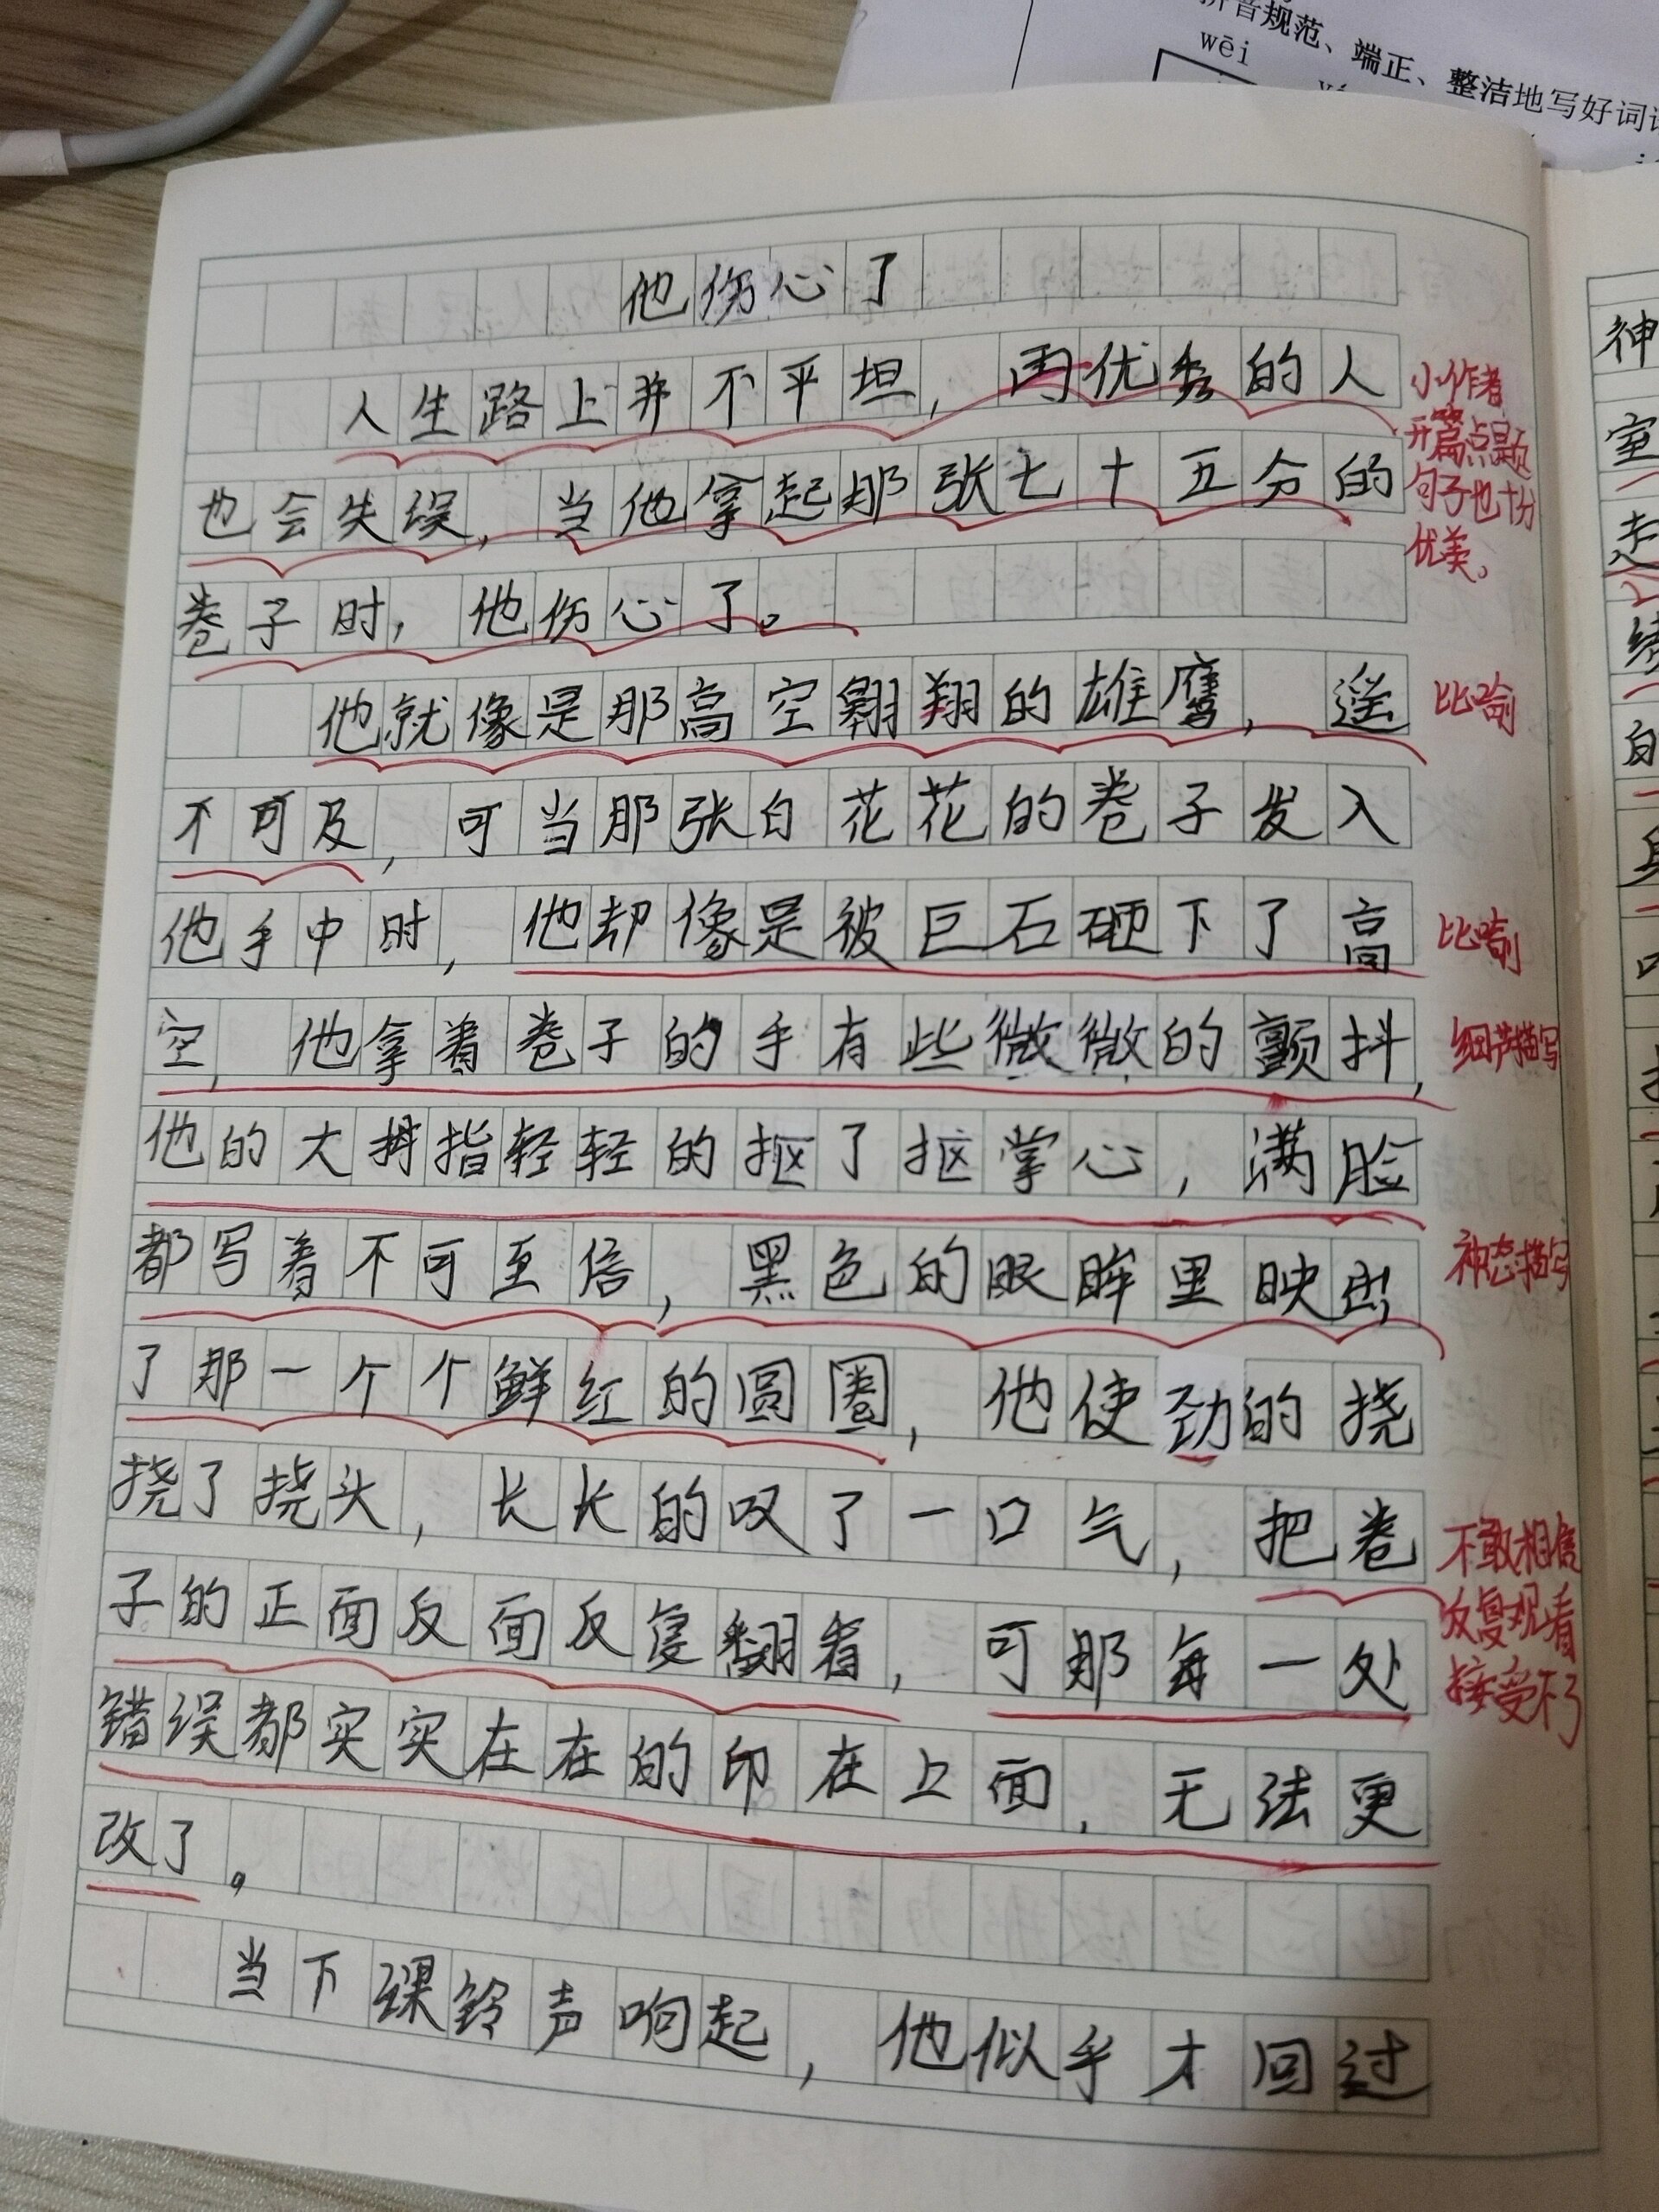 拼音规范、端正、整洁地写好词
wēi
他伤心了
人生路上并不平坦，再优秀的人
也会失误，当他拿起那张七十五分的
卷子时，他伤心了。
小作者
开篇点题
句子也十分
优美。
他就像是那高空翱翔的雄鹰，遥
比喻
不可及，可当那张白花花的卷子发入
他手中时，他却像是被巨石砸下了高
比喻
空，他拿着卷子的手有些微微的颤抖，
细节描写
他的大拇指轻轻的抠了抠掌心，满脸
都写着不可至信，黑色的眼眸里映出
神态描写
了那一个个鲜红的圆圈，他使劲的挠
挠了挠头，长长的叹了一口气，把卷
子的正面反面反复翻看，可那每一处
不敢相信
反复观看
接受不了
错误都实实在在的印在上面，无法更
改了。
当下课铃声响起，他似乎才回过
神
室
走
的